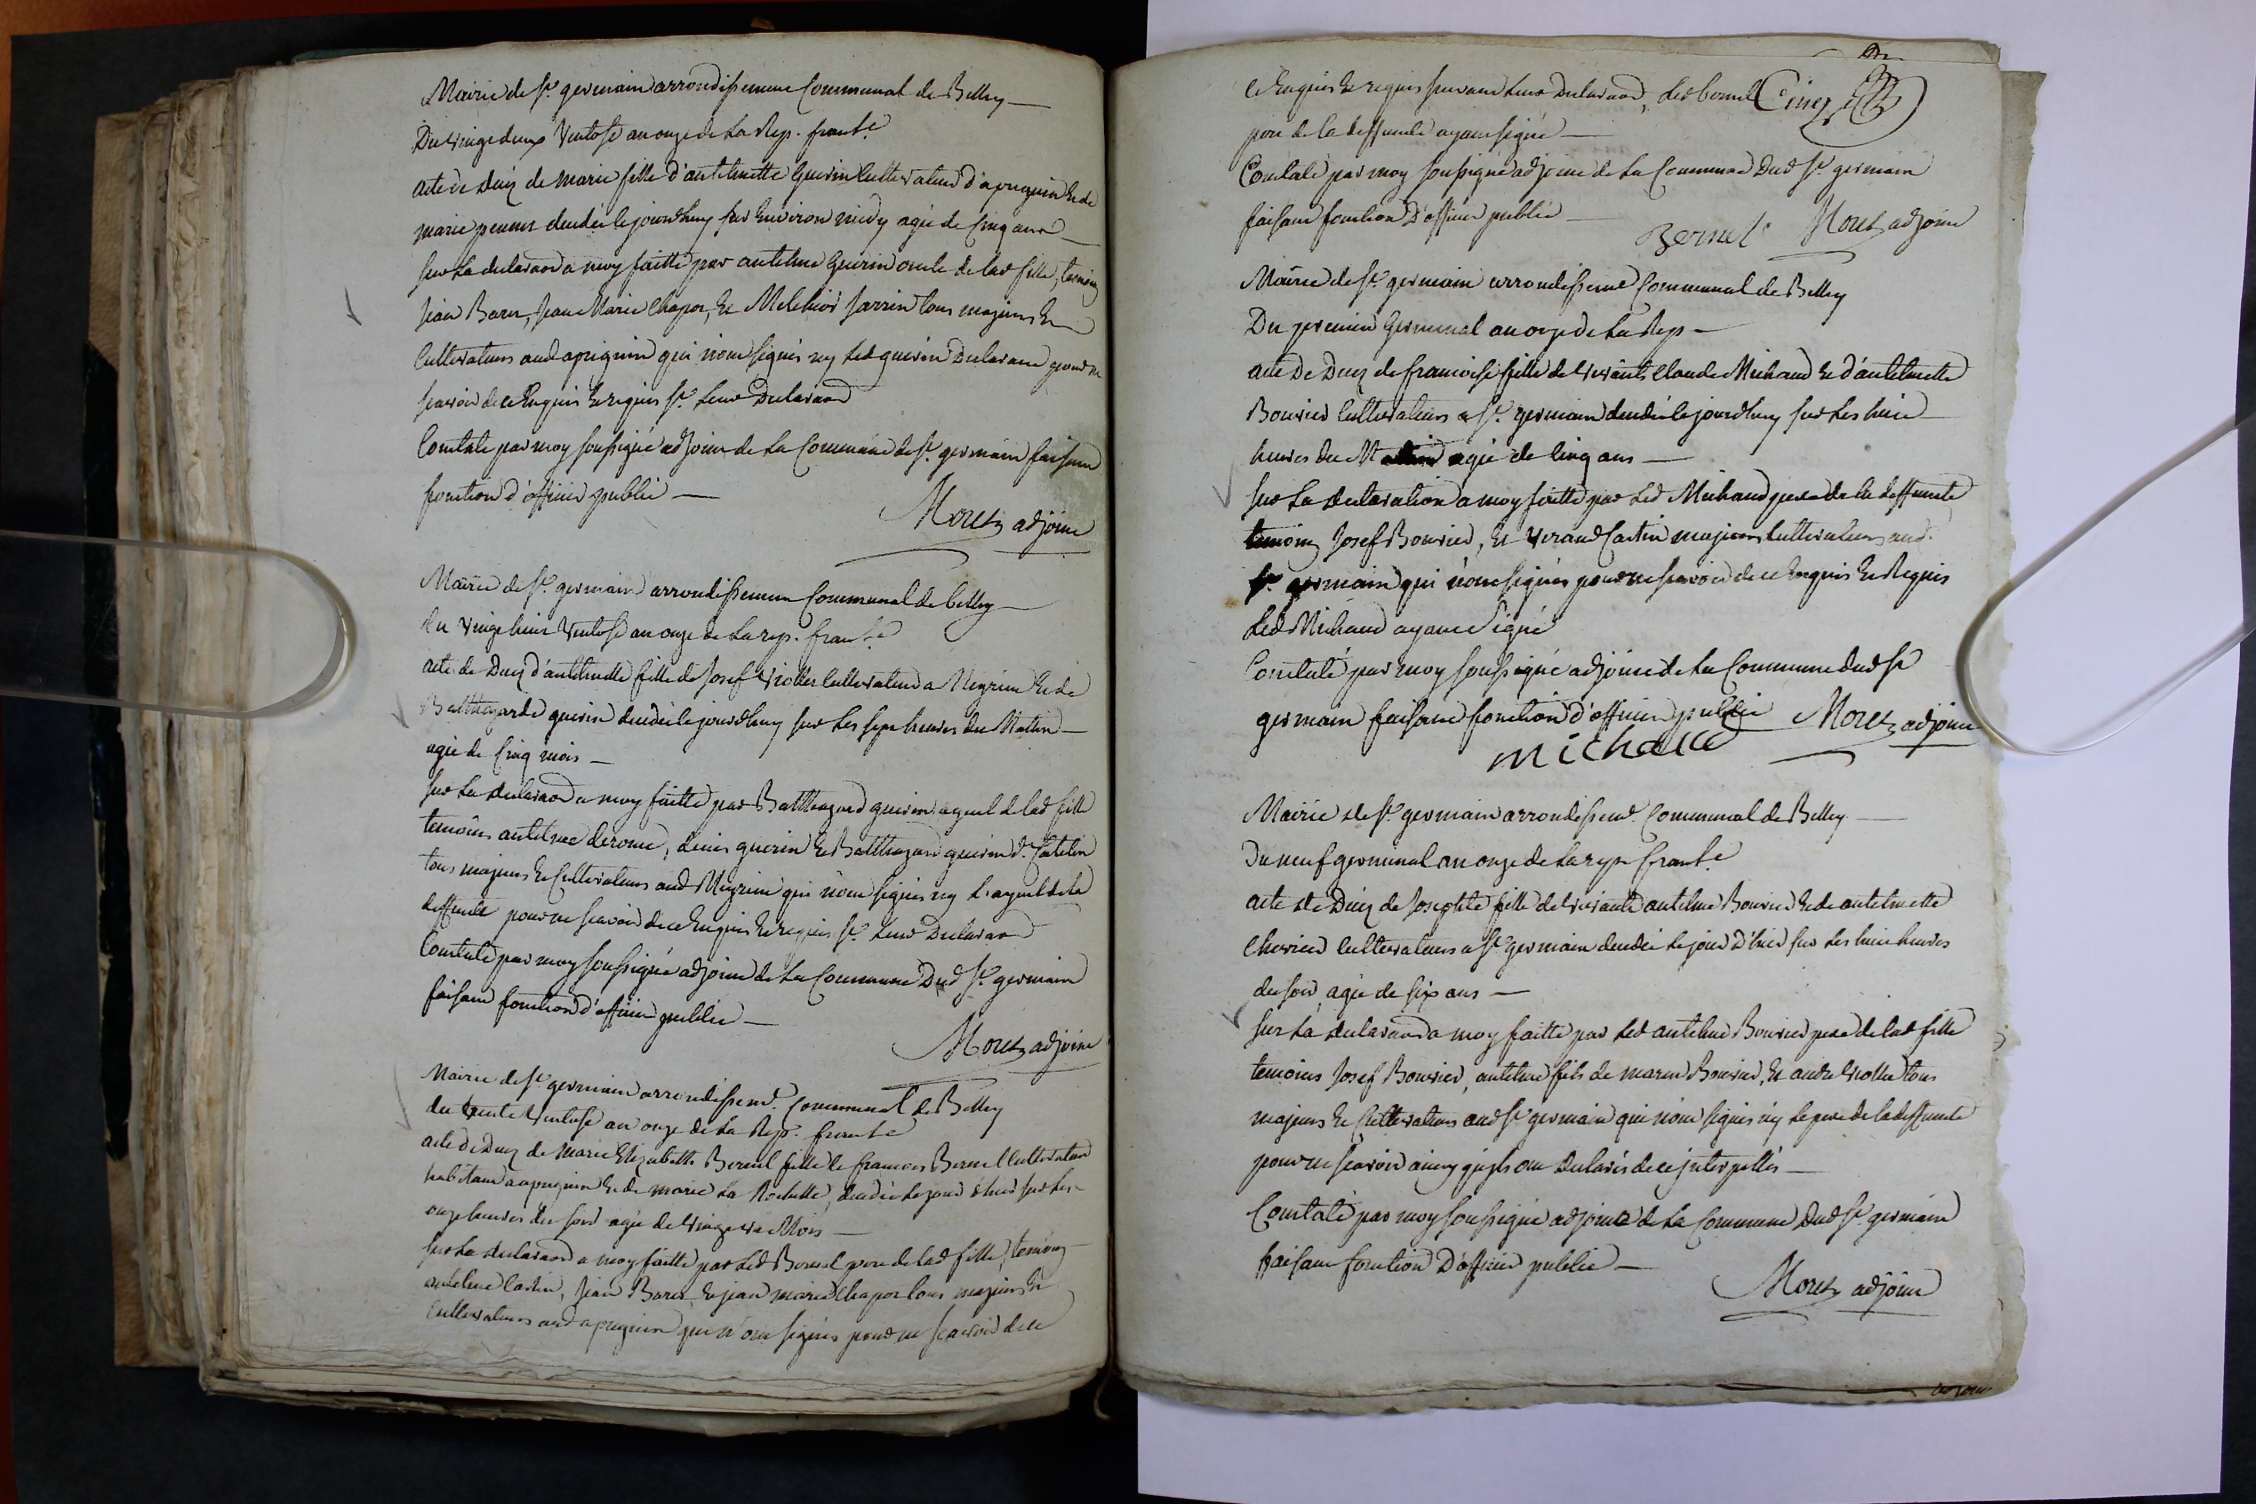 Mairie de St. germain arrondissement Communal de Belley
Du vingt deux Ventose an onze de La Rep. francse
acte de deces de marie fille d'antelmette Guerin Cultivateur d'apregnin et de
marie decedée le jourdhuy sur environ midy agée de Cinq ans
sur La declaraon a moy faitte par antelme Guerin oncle de lad fille, temoins
Jean Baret, Jean Marie Chapot, et Melchior Sarrin tous majeurs et
Cultivateurs aud apregnin qui n'ont signés ny led guerin declarant pour ne
scavoir de ce Enquis et requis st. Leur Declaraon
Constaté par moy soussigné adjoint de La Commune de St. germain faisant
fonction d'officier public
Moret adjoint
Mairie de St. germain arrondissement Communal de belley
du vingt huit Ventose an onze de La rep. francse
acte de Deces d'antelmette fille de Josef Cultivateur a Meyrieu et de
Balthazarde guerin decedée le jourdhuy sur Les sept heures du Matin
agée de Cinq mois
sur La declaraon a moy faitte par Balthazard guerin ayeul de lad fille
temoins antelme derome, denis guerin et Balthazard guerin dt. Catelin
tous majeurs et Cultivateurs aud Meyrieu qui n'ont signés ny L'ayeul de la
deffunte pour ne scavoir de ce Enquis et requis st. Leur Declaraon
Constaté par moy soussigné adjoint de La Commune Dud St. germain
faisant fonction d'officier public
Moret adjoint
Mairie de St. germain arrondissemt. Communal de Belley
du trente Ventose an onze de La Rep. francse
acte de Deces de Marie Elizabeth Bernel fille de francois Bernel Cultivateur
habitant a apregnin et de marie La Rochette, decedée le jour d'hier sur Les
onze heures du soir agée de vingt un Mois
sur La declaraon a moy faitte par Led Bernel pere de lad fille, temoins
antelme Castin, Jean Baret, et jean marie Chapot tous majeurs et
Cultivateurs aud apregnin qui n'ont signés pour ne scavoir de ce
ce Enquis et requis suivant Leur Declaraon, Led bernel
pere de la deffunte ayant signé
Constaté par moy soussigné adjoint de La Commune Dud St germain
faisant fonction D'officier public
Bernel Moret adjoint
Mairie de St. germain arrondissemt Communal de Belley
Du premier Germinal an onze de La Rep
acte De Deces de francoise fille de vivants Claude Michaud et d'antelmette
Bouvier Cultivateurs a St. germain decedée le jourdhuy sur Les huit
heures du Matin agée de Cinq ans
sur La declaration a moy faitte par Led Michaud pere de la deffunte
temoins Josef Bouvier, et Castin majeurs Cultivateurs aud.
St. germain qui n'ont signés pour ne scavoir de ce Enquis et Requis
Led Michaud ayant Signé
Constaté par moy soussigné adjoint de La Commune dud St
germain faisant fonction d'officier public Moret adjoint
michaud
Mairie de St. germain arrondissemt. Communal de Belley
Du neuf germinal an onze de La rep francse
acte de Deces de Josephte fille de vivants antelme Bouvier et de antelmette
Chevrier Cultivateurs a St. germain decedée le jour d'hier sur Les huit heures
du soir agée de six ans
sur La declaraon a moy faitte par Led antelme Bouvier pere de lad fille
temoins Josef Bouvier, antelme fils de marin Bouvier, et andré tous
majeurs et Cultivateurs aud St germain qui n'ont signés ny Le pere de la deffunte
pour ne scavoir ainsy qu'ils ont declarés de ce interpellés
Constaté par moy soussigné adjoint de La Commune Dud St. germain
faisant fonction D'officier public
Moret adjoint